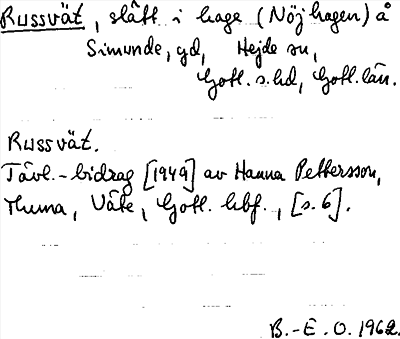 Russvät, slått i hage (Nöjhagen) å
Simunde, gd, Hejde sn,
Gotl. s. hd, Gotl. län.
Russvät.
Tävl.-bidrag [1949] av Hanna Pettersson,
Thuma, Väte, Gotl. hbf., [s. 6].
B.-E. O. 1962.